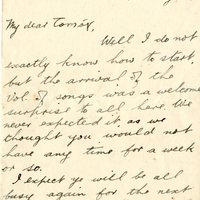 My dear Tomás,
Well I do not
exactly know how to start,
but the arrival of the
Vol. of songs was a welcome
surprise to all here. We
never expected it, as we
thought you would not
have any time for a week
or so.
I expect ye will be all
busy again for the next